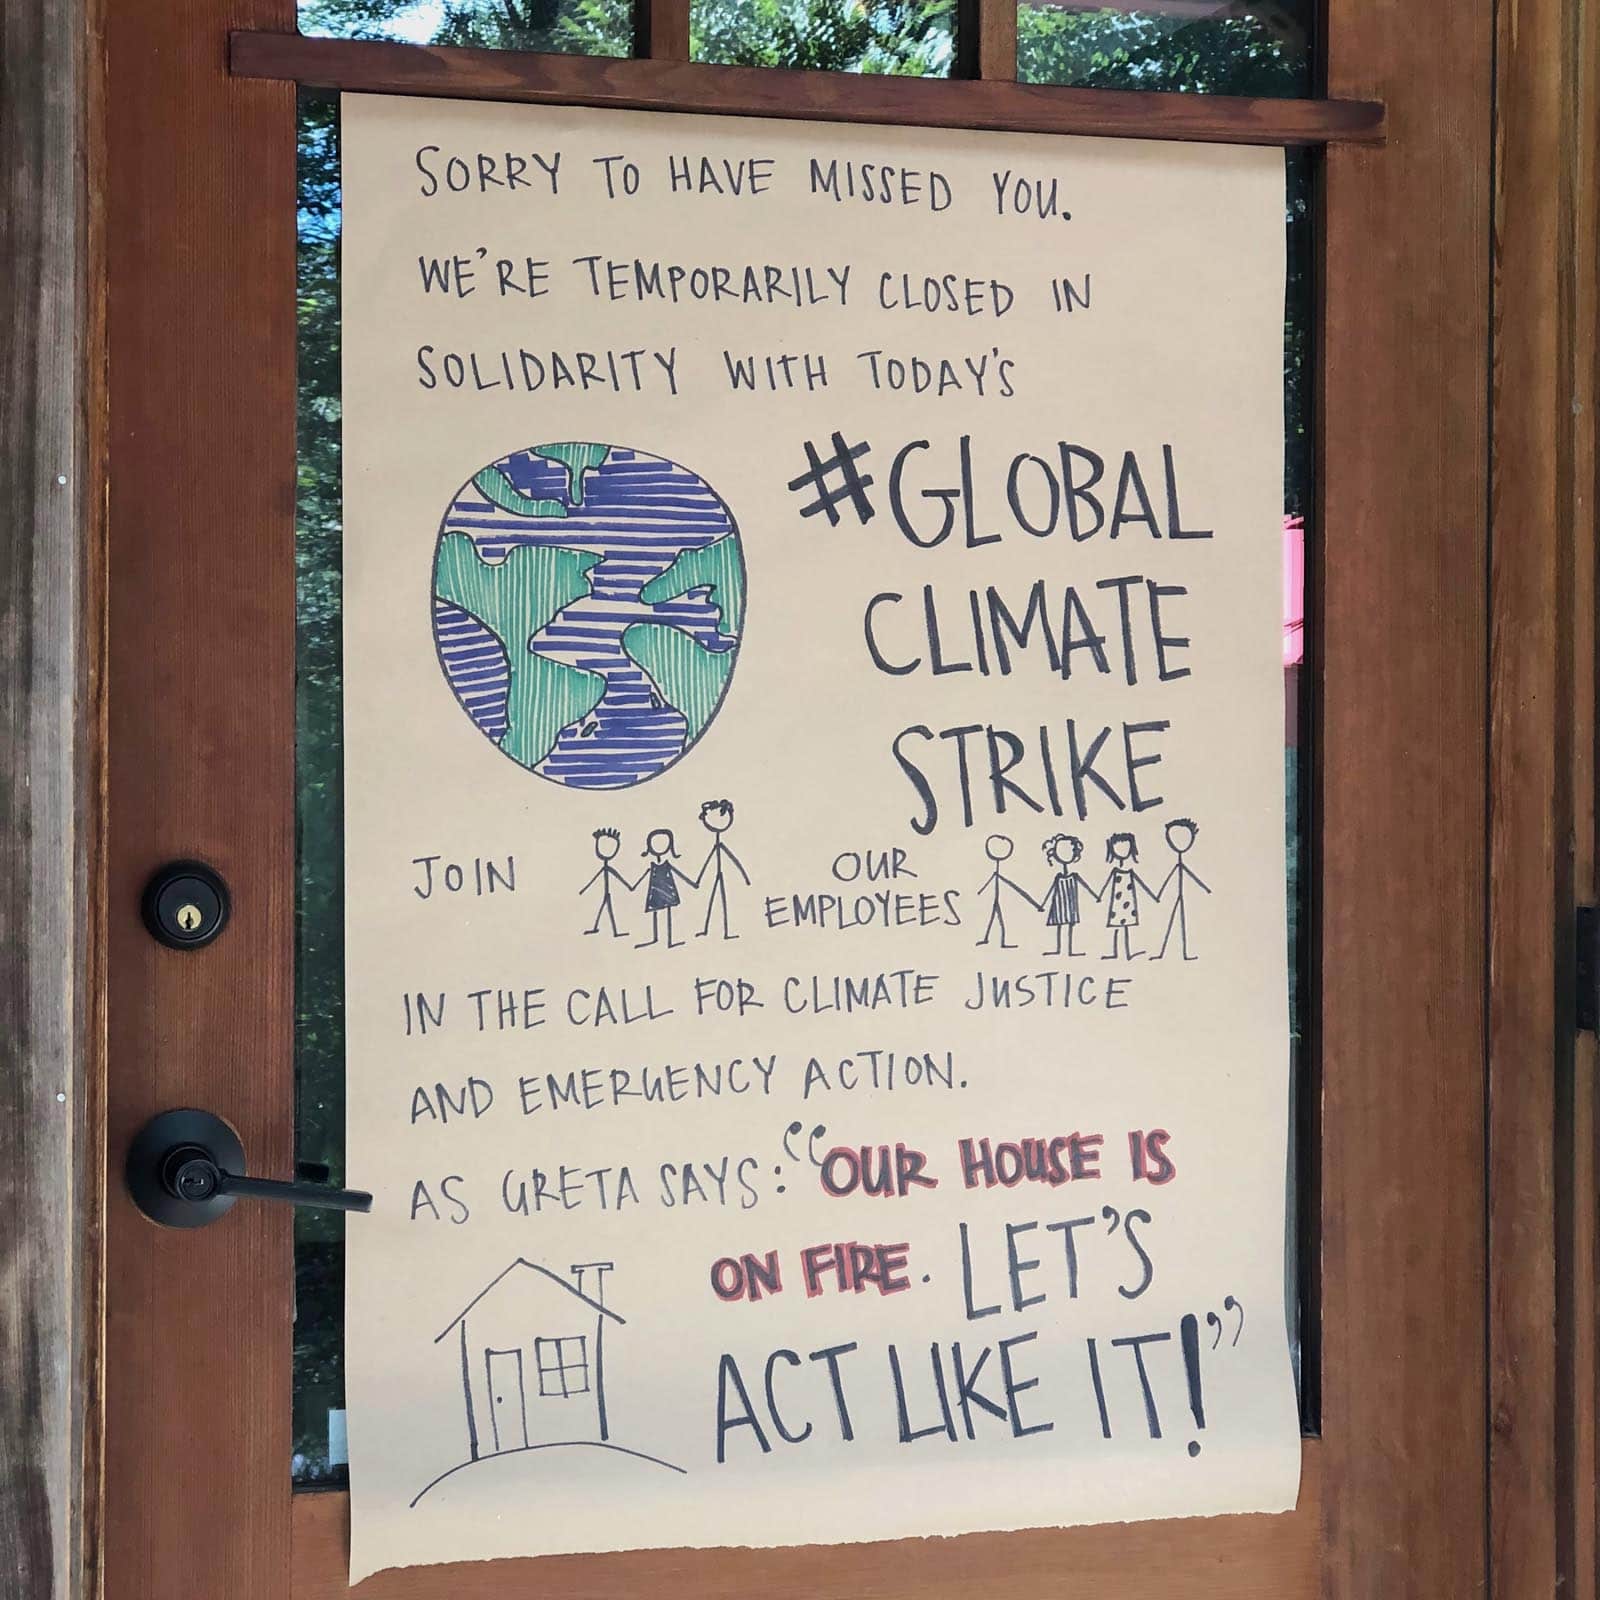 SORRY TO HAVE MISSED YOU.
WE'RE TEMPORARILY CLOSED IN
SOLIDARITY WITH TODAY'S
#GLOBAL
CLIMATE
STRIKE
JOIN OUR
EMPLOYEES
IN THE CALL FOR CLIMATE JUSTICE
AND EMERGENCY ACTION.
AS GRETA SAYS: “OUR HOUSE IS
ON FIRE. LET'S
ACT LIKE IT!”